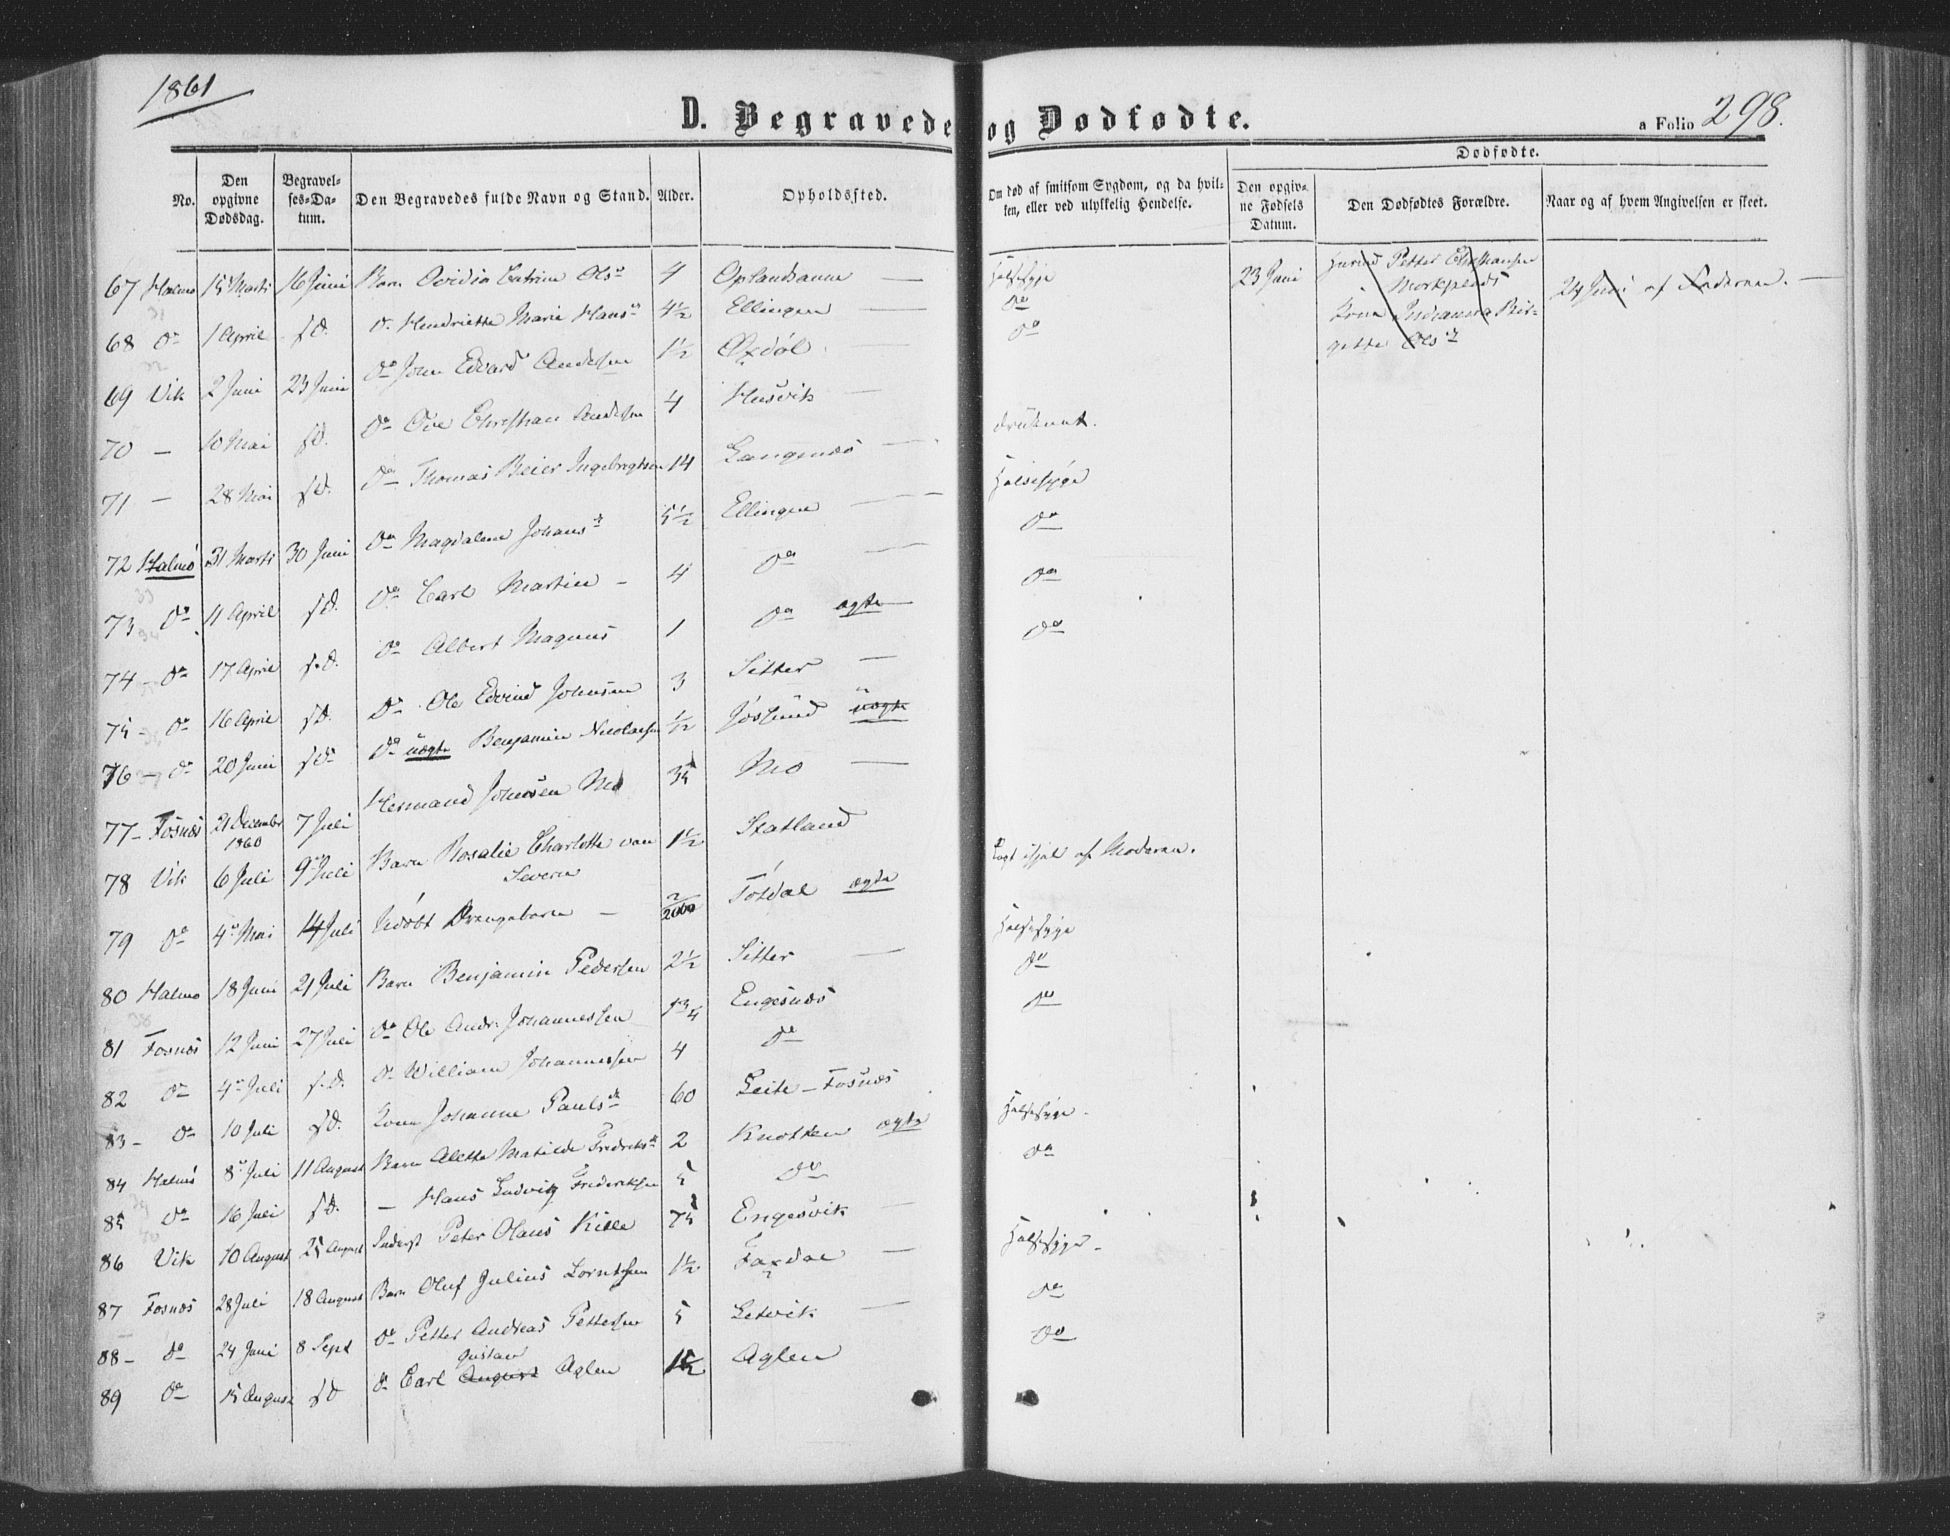 1861
D. Begravede og Dødfødte.
a Folio 298.
No.
Den opgivne Dødsdag.
Begravelses-Datum.
Den Begravedes fulde Navn og Stand.
Alder.
Opholdssted.
Om død af smitsom Sygdom, og da hvilken, eller ved ulykkelig Hendelse.
Dødfødte.
Den opgivne Fødsels Datum.
Den Dødfødtes Forældre.
Naar og af hvem Angivelsen er skeet.
67 Halmø 15 Marts 16 Juni Barn Ovidia Catrine Olsdt 4 Oplandsaune — Halssyge 23 Juni Petter Christiansen 24 Juni af Faderen. —
68 do 1 April s.d. do Hendriette Marie Hansdt 4½ Ellingen — do Kone Birgitte Olsdt
69 Vik 2 Juni 23 Juni do John Edvard Andersen 1½ Oxdøl — do
70 — 10 Mai s.d. do Ove Christian Andersen 4 Husvik — druknet.
71 — 28 Mai s.d. do Thomas Beier Ingebregtsen 14 Langenæs — Halssyge
72 Halmø 31 Marts 30 Juni do Magdalene Johansdt 5½ Ellingen — do
73 do 11 April s.d. do Carl Martin — 4 do — do
74 — do 17 April s.d. do Albert Magnus 1 do ægte — do
75 — do 16 April s.d. do Ole Edvind Johnsen 3 Sitter —
76 — do 20 Juni s.d. do uægte Benjamin Nicolaisen ½ Jøssund uægte
77 — Fosnæs 21 December 1860 7 Juli Hermand Johnsen Mo 35 Mo —
78 Vik 6 Juli 9 Juli Barn Rosalie Charlotte von Severn 1½ Statland Lagt ihjel af Moderen.
79 do 4 Mai 14 Juli Udøbt Drengebarn — Totdal ægte Halssyge
80 Halmø 18 Juni 21 Juli Barn Benjamin Pedersen 2½ Sitter — do
81 Fosnæs 12 Juni 27 Juli do Ole Andr. Johannessen 1¾ Engesnæs do
82 do 4 Juli s.d. do William Johannessen 4 do
83 — do 10 Juli s.d. Kone Johanne Paulsdt 60 Leite — Fosnæs Halssyge.
84 Halmø 8 Juli 11 August Barn Alette Matilde Fredriksdt 2 Knotten ægte do
85 do 16 Juli s.d. — Hans Ludvig Frederiksen 5 do
86 Vik 10 August 25 August Inderst Peter Olaus Kille 75 Engesvik — Halssyge —
87 Fosnæs 28 Juli 18 August Barn Oluf Julius Lorntsen 1½ Faxdal — do
88 — do 24 Juni 8 Sept do Petter Andreas Pettersen 5 Letvik — do
gustav
89 do 15 August s.d. do Carl August Aglen 1½ Aglen